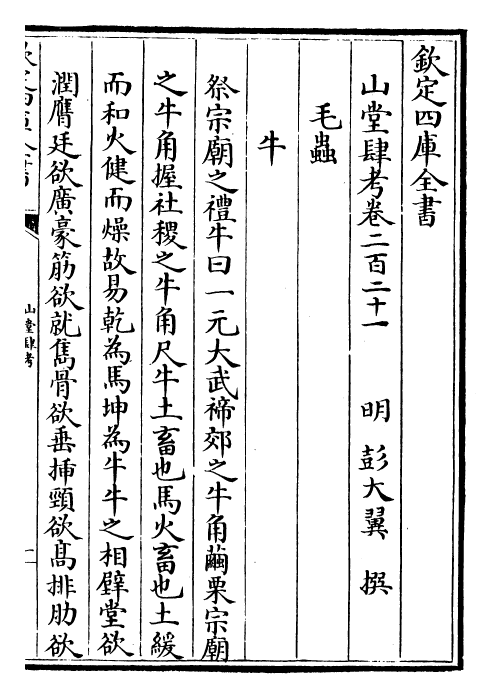 欽定四庫全書
山堂肆考卷二百二十一 明 彭大翼 撰
毛蟲
牛
祭宗廟之禮牛曰一元大武禘郊之牛角繭栗宗廟
之牛角握社稷之牛角尺牛土畜也馬火畜也土緩
而和火健而燥故易乾為馬坤為牛牛之相壁堂欲
潤膺廷欲廣豪筋欲就雋骨欲垂揷頸欲髙排肋欲
山堂肆考